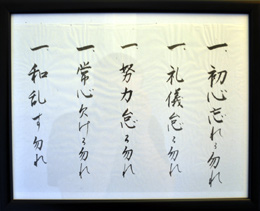 一、初心忘れる勿れ
一、礼儀怠る勿れ
一、努力怠る勿れ
一、常心欠ける勿れ
一、和乱す勿れ